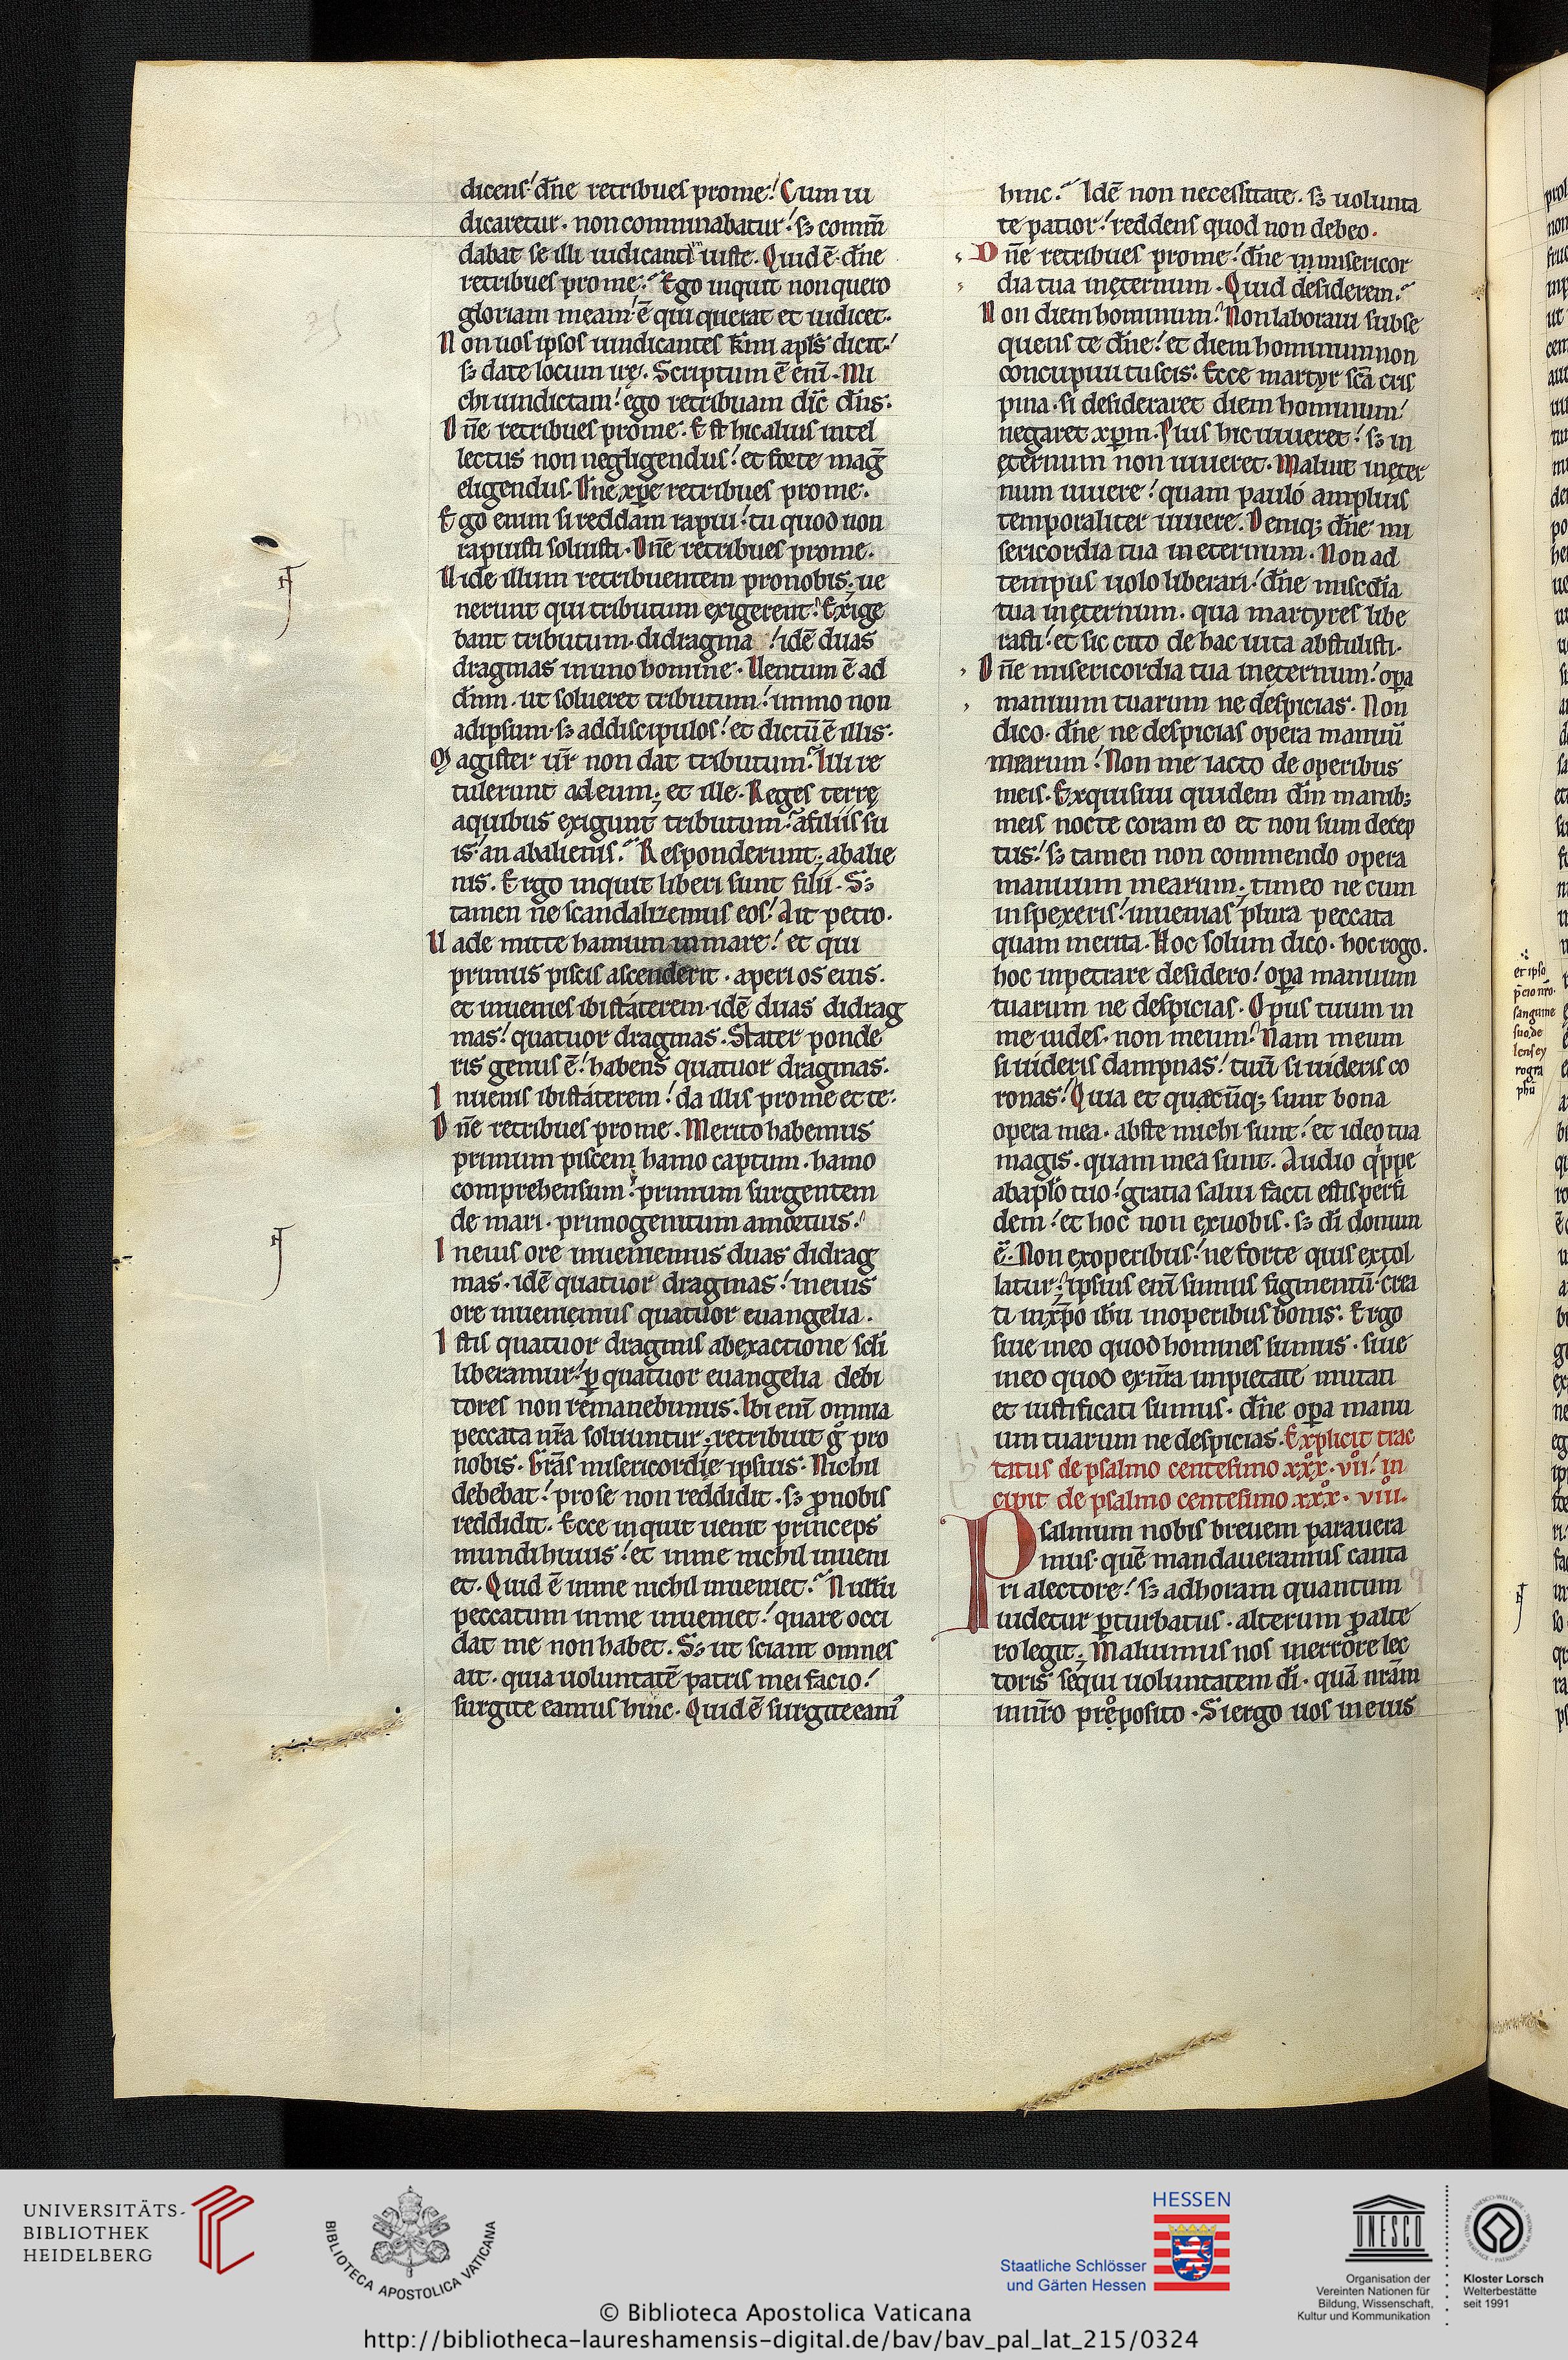 dicens! dn̄e retribues prome! Cum iu
dicaretur. non comminabatur! sꝫ comm̄
dabat se illi iudicanti iuste. Quid ē. dn̄e
retribues prome? Ego inquit non quero
gloriam meam! ē qui querat et iudicet.
Non uos ipsos uindicantes km̄i apłs dicit!
sꝫ date locum irę. Scriptum ē eni̅. Mi
chi uindictam! ego retribuam dic̄ dn̄s.
Dn̄e retribues prome. Est hic alius intel
lectus non negligendus! et forte mag̅
eligendus. Dn̄e xp̄e retribues prome.
Ego enim si reddam rapui! tu quod non
rapuisti soluisti. Dn̄e retribues prome.
Uide illum retribuentem pro nobis. ue
nerunt qui tributum exigerent! Exige
bant tributum didragma! idē duas
dragmas in uno homine. Uentum ē ad
dn̄m. ut solueret tributum! immo non
ad ipsum sꝫ ad discipulos! et dictū ē illis.
Magister ur̄ non dat tributum? Illi re
tulerunt ad eum. et ille. Reges terrę
a quibus exigunt tributum? a filiis su
is! an ab alienis? Responderunt. ab alie
nis. Ergo inquit liberi sunt filii. Sꝫ
tamen ne scandalizemus eos! Ait petro.
Uade mitte hamum in mare! et qui
primus piscis ascenderit. aperi os eius.
et inuenies ibi staterem. idē duas didrag
mas! quatuor dragmas. Stater ponde
ris genus ē! habens quatuor dragmas.
Inuenis ibi staterem! da illis pro me et te.
Dn̄e retribues prome. Merito habemus
primum piscem hamo captum. hamo
comprehensum! primum surgentem
de mari. primogenitum a mortuis!
In eius ore inuenimus duas didrag
mas. idē quatuor dragmas! in eius
ore inuenimus quatuor euangelia.
Istis quatuor dragmis ab exactione scłi
liberamur! ꝑ quatuor euangelia debi
tores non remanebimus. Ibi eni̅ omnia
peccata nr̄a soluuntur. retribuit g̊ pro
nobis. Gr̄as misericordię ipsius. Nichil
debebat! pro se non reddidit. sꝫ ꝓ nobis
reddidit. Ecce inquit uenit princeps
mundi huius! et in me nichil inueni
et. Quid ē in me nichil inueniet? Nullū
peccatum in me inueniet! quare occi
dat me non habet. Sꝫ ut sciant omnes
ait. quia uoluntatē patris mei facio!
surgite eamus hinc. Quid ē surgite eamꝰ
hinc? Idē non necessitate. sꝫ uolunta
te patior! reddens quod non debeo.
Dn̄e retribues prome! dn̄e misericor
dia tua inęternum. Quid desiderem?
Non diem hominum? Non laboraui subse
quens te dn̄e! et diem hominum non
concupiui tu scis. Ecce martyr sc̄a cris
pina. si desideraret diem hominum!
negaret xp̄m. Plus hic uiueret! sꝫ in
ęternum non uiueret. Maluit inęter
num uiuere! quam pauló amplius
temporaliter uiuere. Deniqꝫ dn̄e mi
sericordia tua in eternum. Non ad
tempus uolo liberari! dn̄e miscd̄ia
tua inęternum. qua martyres libe
rasti! et sic cito de hac uita abstulisti.
Dn̄e misericordia tua inęternum! oꝑa
manuum tuarum ne despicias. Non
dico. dn̄e ne despicias opera manuū
mearum! Non me iacto de operibus
meis. Exquisiui quidem dn̄m manibꝫ
meis nocte coram eo et non sum decep
tus! sꝫ tamen non commendo opera
manuum mearum. timeo ne cum
inspexeris! inuenias plura peccata
quam merita. Hoc solum dico. hoc rogo.
hoc inpetrare desidero! oꝑa manuum
tuarum ne despicias. Opus tuum in
me uides. non meum! Nam meum
si uideris dampnas! tuū si uideris co
ronas! Quia et quęcūqꝫ sunt bona
opera mea. abs te michi sunt! et ideo tua
magis. quam mea sunt. Audio q̍ppe
ab apło tuo! gratia salui facti estis per fi
dem! et hoc non ex uobis. sꝫ di̅ donum
ē. Non ex operibus! ne forte quis extol
latur. ipsius eni̅ sumus figmentū! crea
ti in xp̄o ih̄u in operibus bonis. Ergo
siue in eo quod homines sumus. siue
in eo quod ex nr̄a impietate mutati
et iustificati sumus. dn̄e oꝑa manu
um tuarum ne despicias. Explicit trac
tatus de psalmo centesimo xxx̊. vii̊! in
cipit de psalmo centesimo xxx̊. viii.
Psalmum nobis breuem parauera
mus. quē mandaueramus canta
ri a lectore! sꝫ ad horam quantum
uidetur ꝑturbatus. alterum ꝓ alte
ro legit. Maluimus nos in errore lec
toris sequi uoluntatem di̅. quā nr̄am
in nr̄o proposito. Si ergo uos in eius
et ipso
p̄cio nr̄o
sanguine
suo de
lens cy
rogra
phū
UNIVERSITÄTS-
BIBLIOTHEK
HEIDELBERG
BIBLIOTECA APOSTOLICA VATICANA
HESSEN
Staatliche Schlösser
und Gärten Hessen
UNESCO
Organisation der
Vereinten Nationen für
Bildung, Wissenschaft,
Kultur und Kommunikation
Kloster Lorsch
Welterbestätte
seit 1991
© Biblioteca Apostolica Vaticana
http://bibliotheca-laureshamensis-digital.de/bav/bav_pal_lat_215/0324